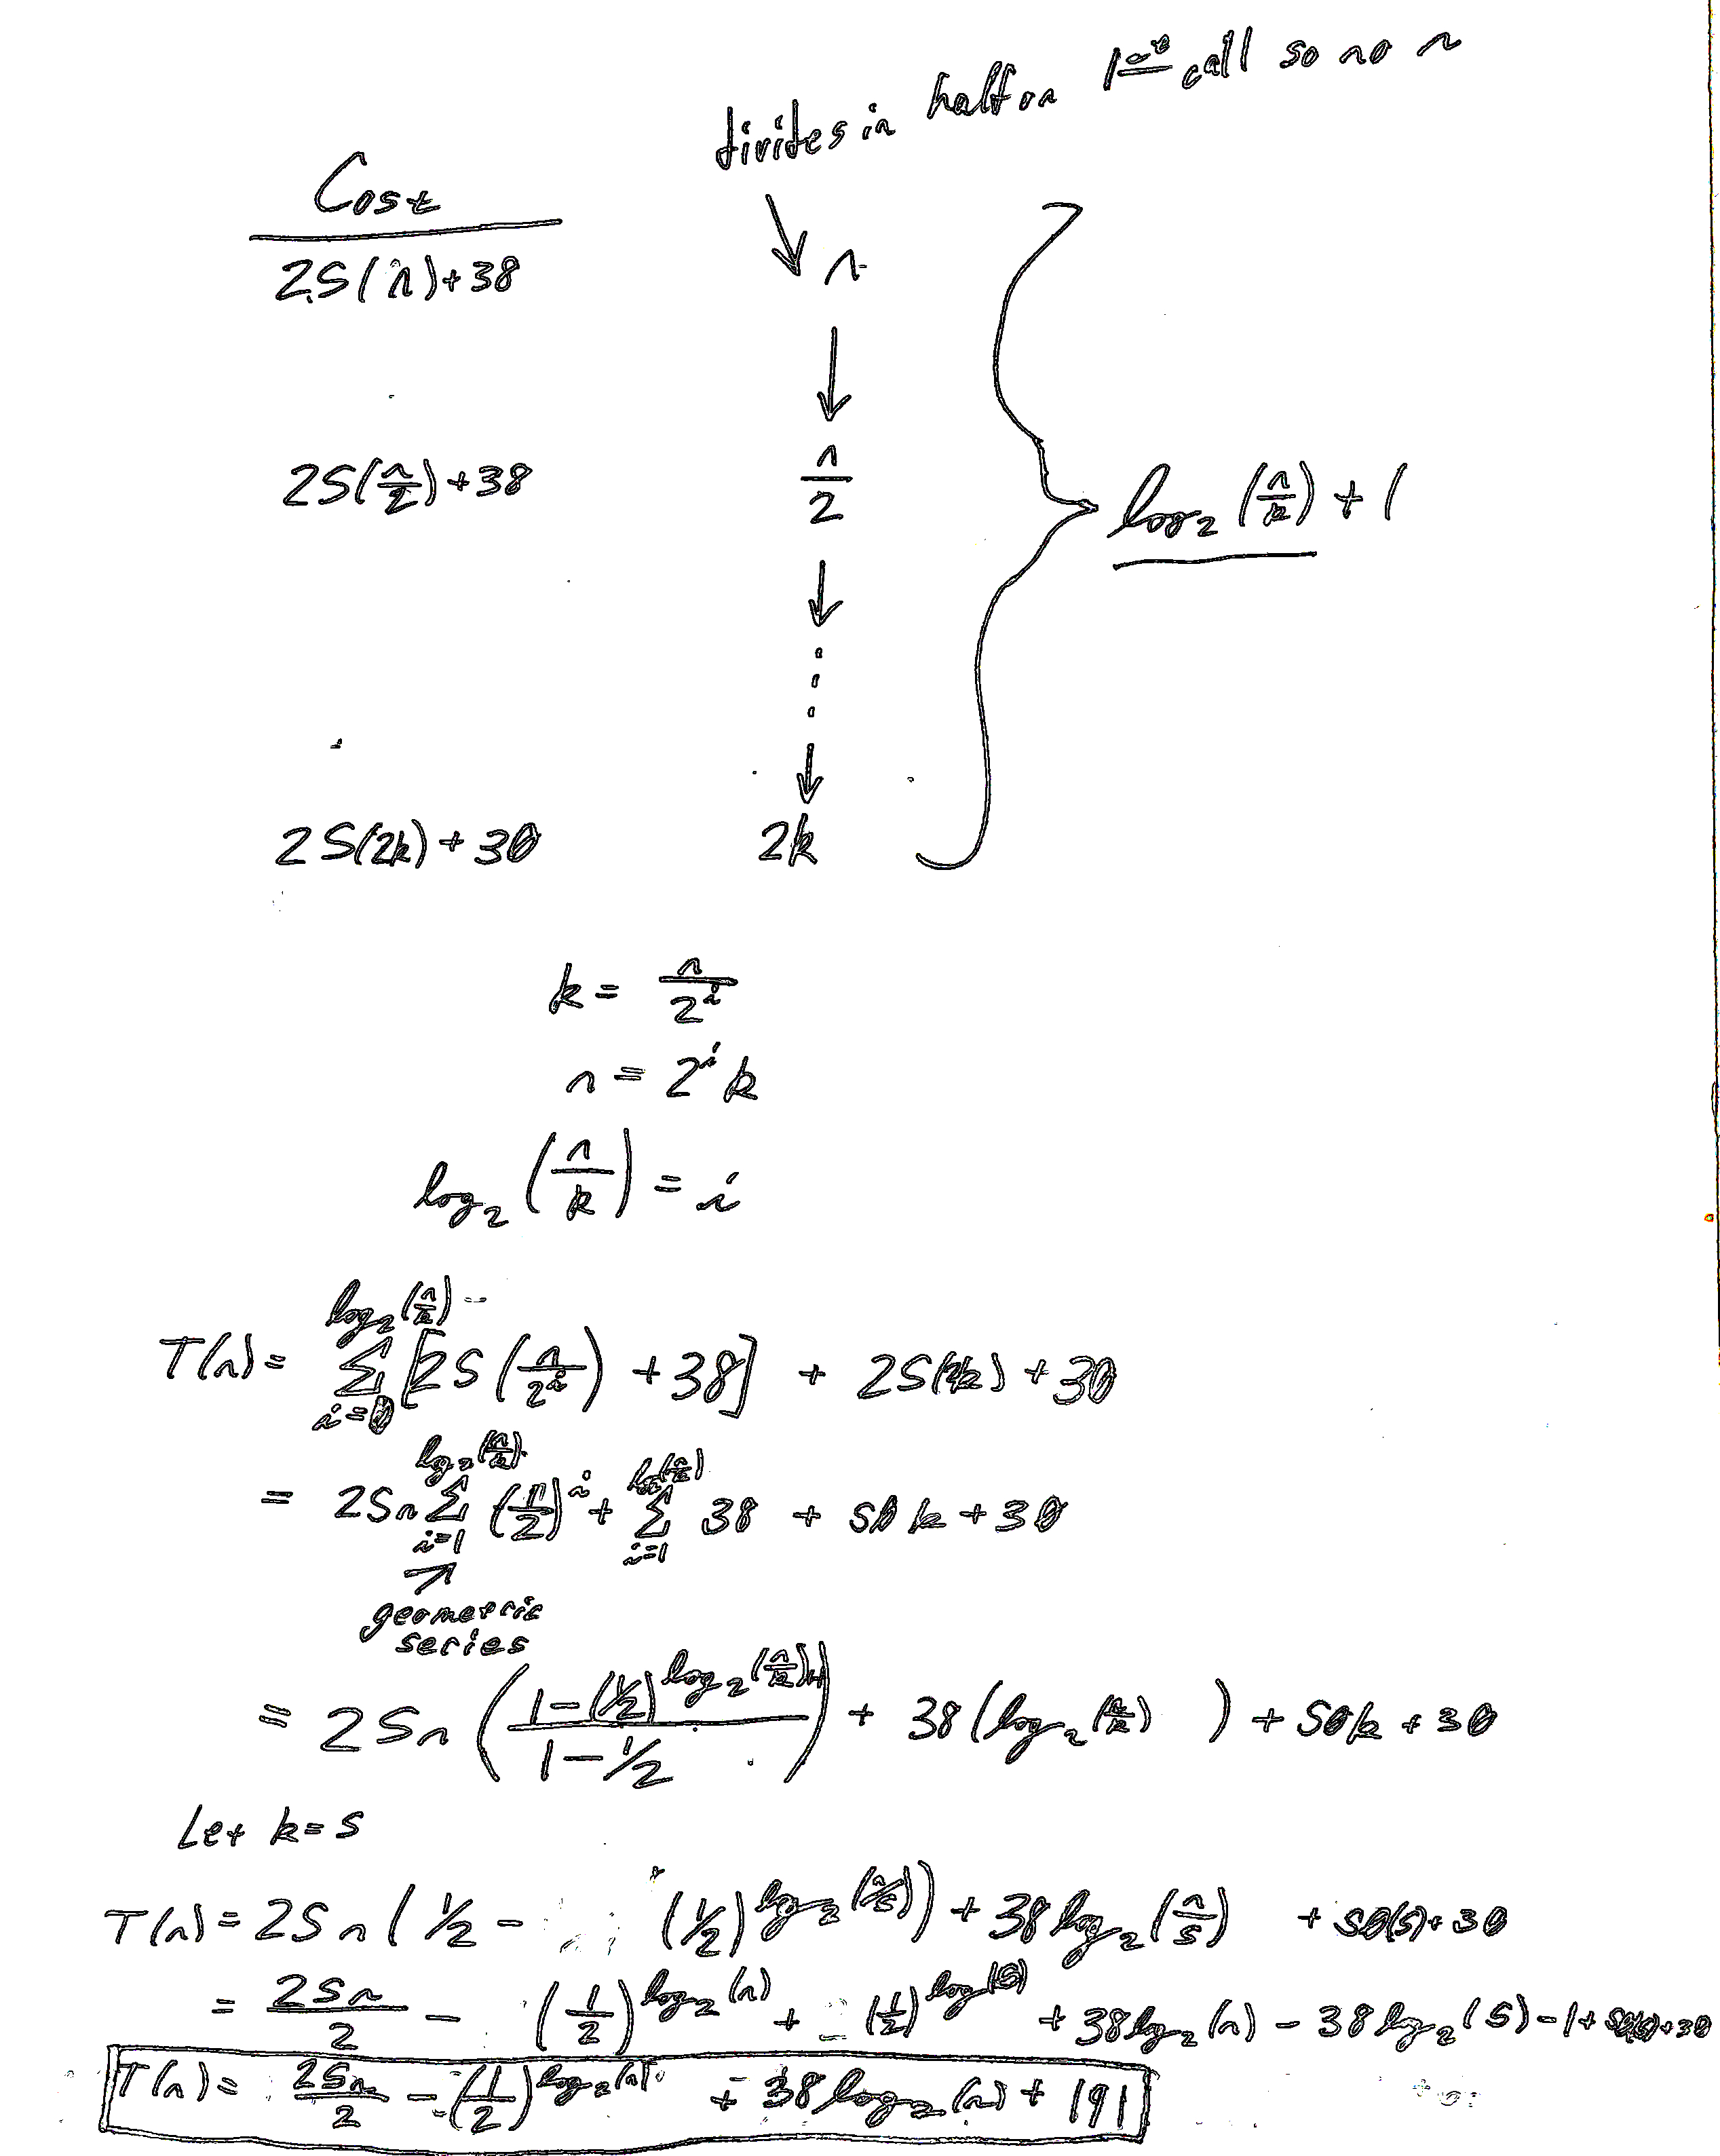 divides in half on 1st call so no n
Cost
25(n)+38 n
25(n/2)+38 n/2 log₂(n/k)+1
25(2k)+30 2k
k = n/2^i
n = 2^i k
log₂(n/k) = i
T(n) = Σ_{i=0}^{log₂(n/k)} [25(n/2^i)+38] + 25(2k)+30
= 25n Σ_{i=1}^{log₂(n/k)} (1/2)^i + Σ_{i=1}^{log₂(n/k)} 38 + 50k+30
geometric
series
= 25n((1-(1/2)^{log₂(n/k)+1})/(1-1/2)) + 38(log₂(n/k)) + 50k+30
Let k=5
T(n) = 25n(1/2 - (1/2)^{log₂(n/5)}) + 38 log₂(n/5) + 50(5)+30
= 25n/2 - (1/2)^{log₂(n)} + (1/2)^{log(5)} + 38 log₂(n) - 38 log₂(5) - 1 + 50(5)+30
T(n) = 25n/2 - (1/2)^{log₂(n)} + 38 log₂(n) + 191